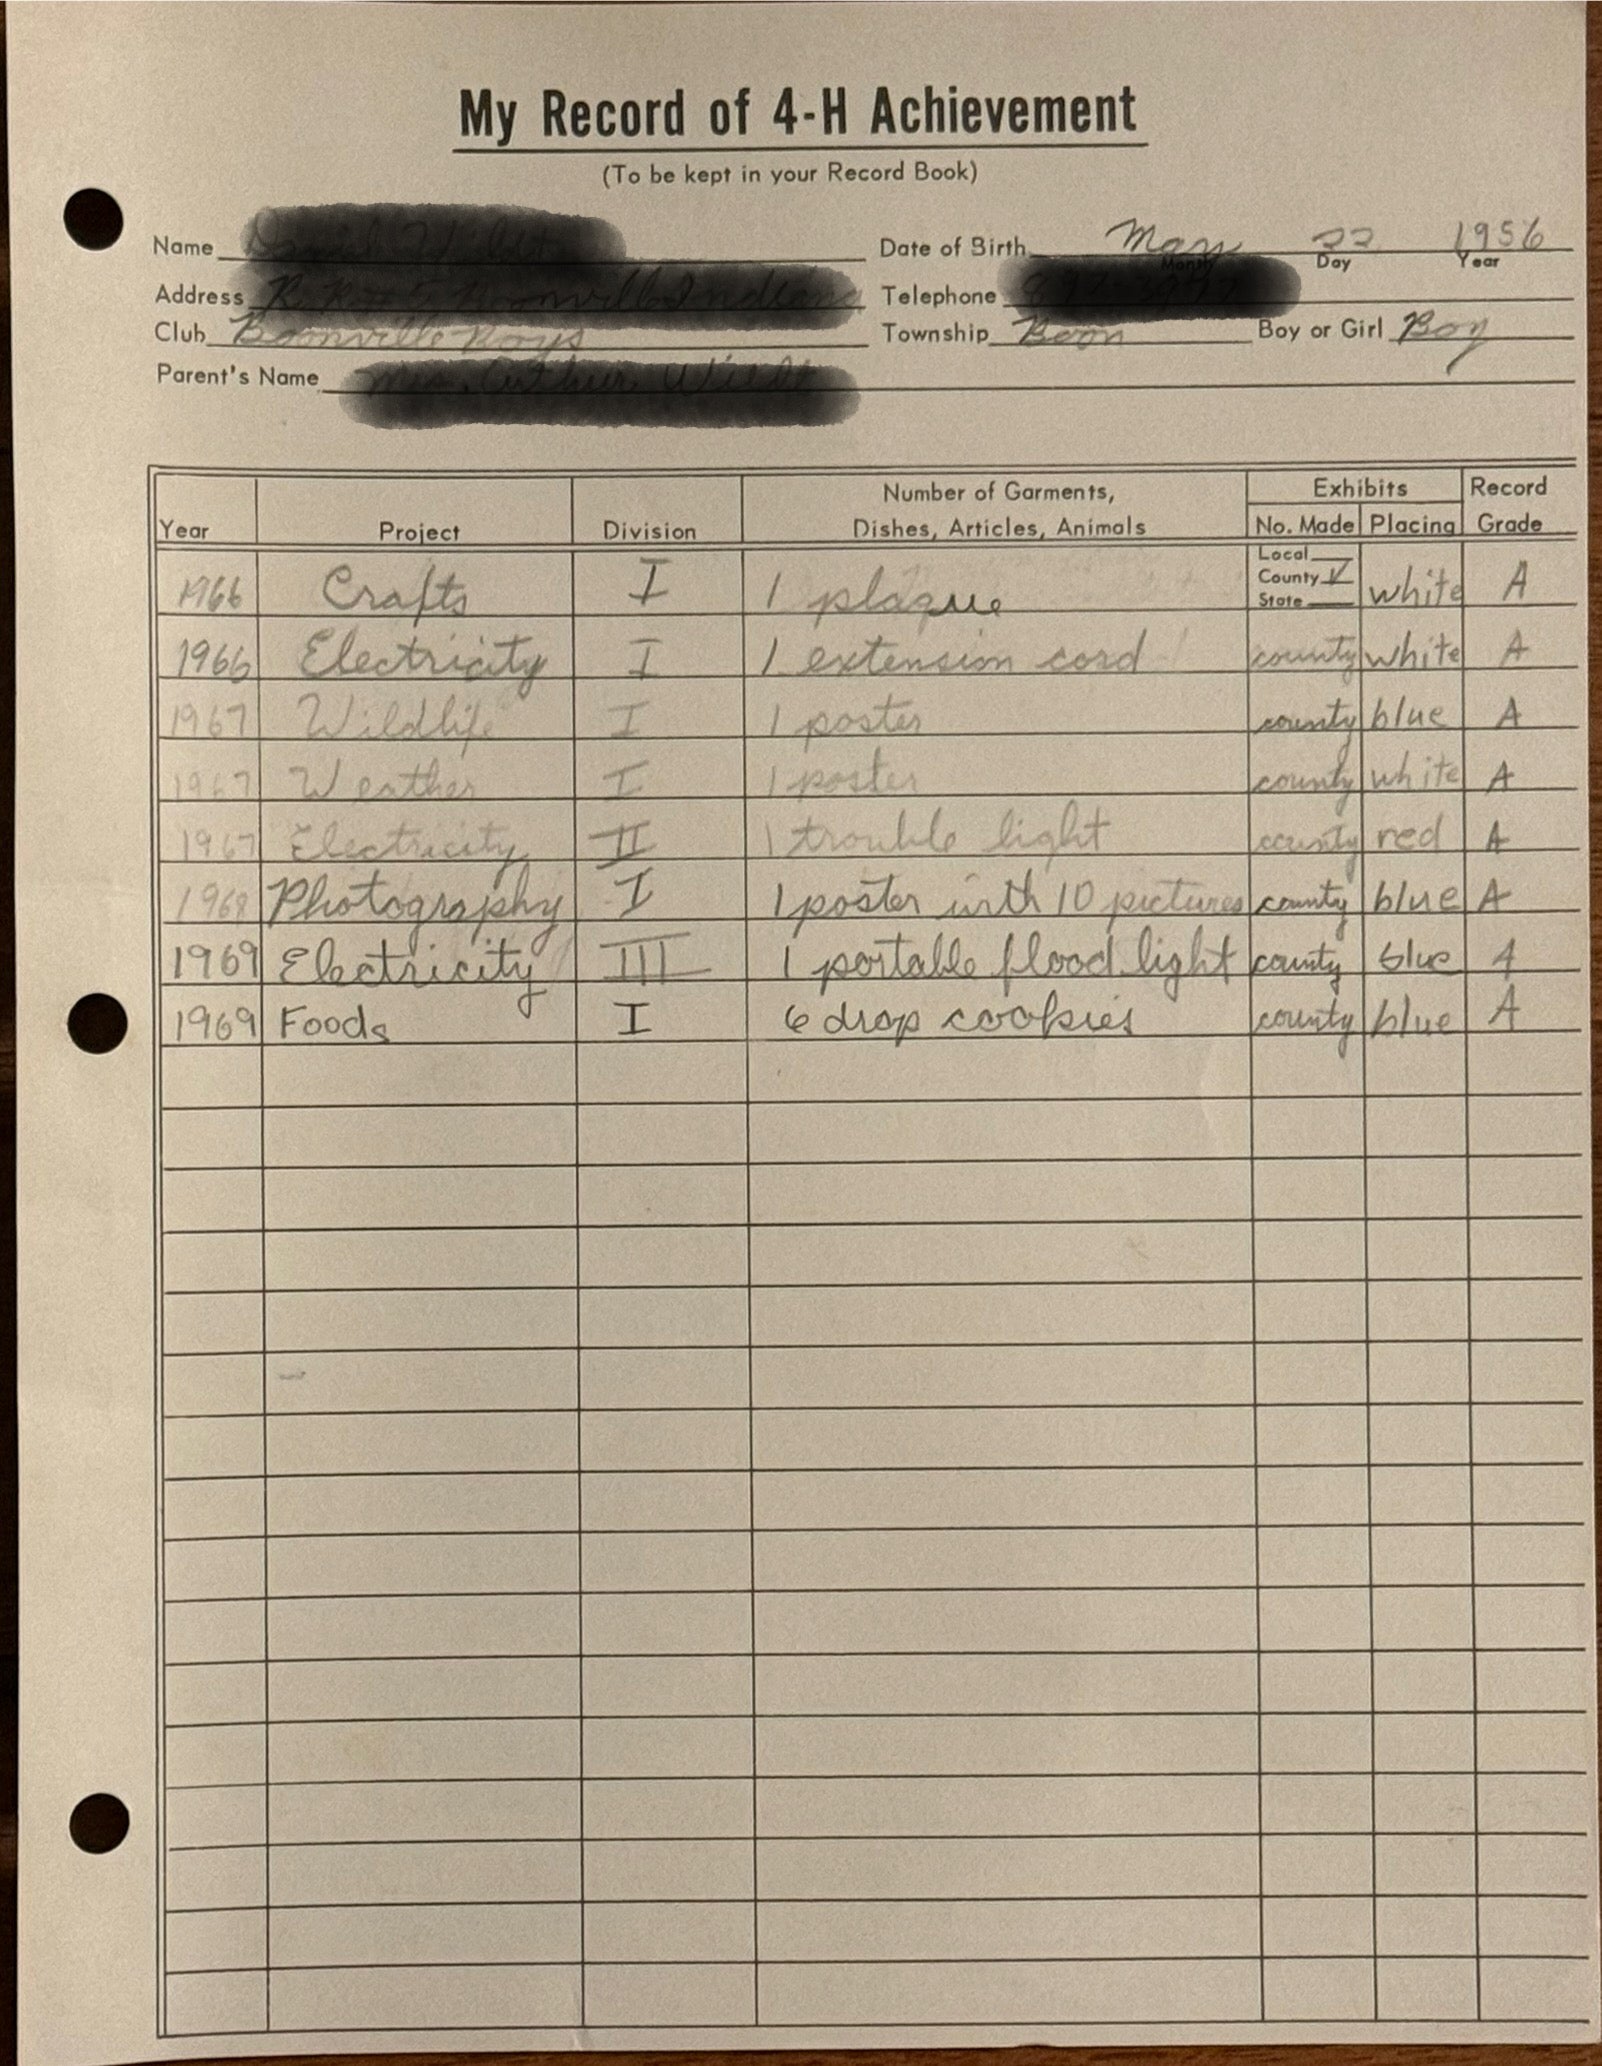 My Record of 4-H Achievement
(To be kept in your Record Book)
Name Date of Birth May 22 1956
Month Day Year
Address Telephone
Club Boonville Boys Township Boon Boy or Girl Boy
Parent's Name
Year Project Division Number of Garments, Dishes, Articles, Animals Exhibits No. Made Placing Record Grade
Local
1966 Crafts I 1 plaque County ✓ white A
State
1966 Electricity I 1 extension cord county white A
1967 Wildlife I 1 poster county blue A
1967 Weather I 1 poster county white A
1967 Electricity II 1 trouble light county red A
1968 Photography I 1 poster with 10 pictures county blue A
1969 Electricity III 1 portable flood light county blue A
1969 Foods I 6 drop cookies county blue A